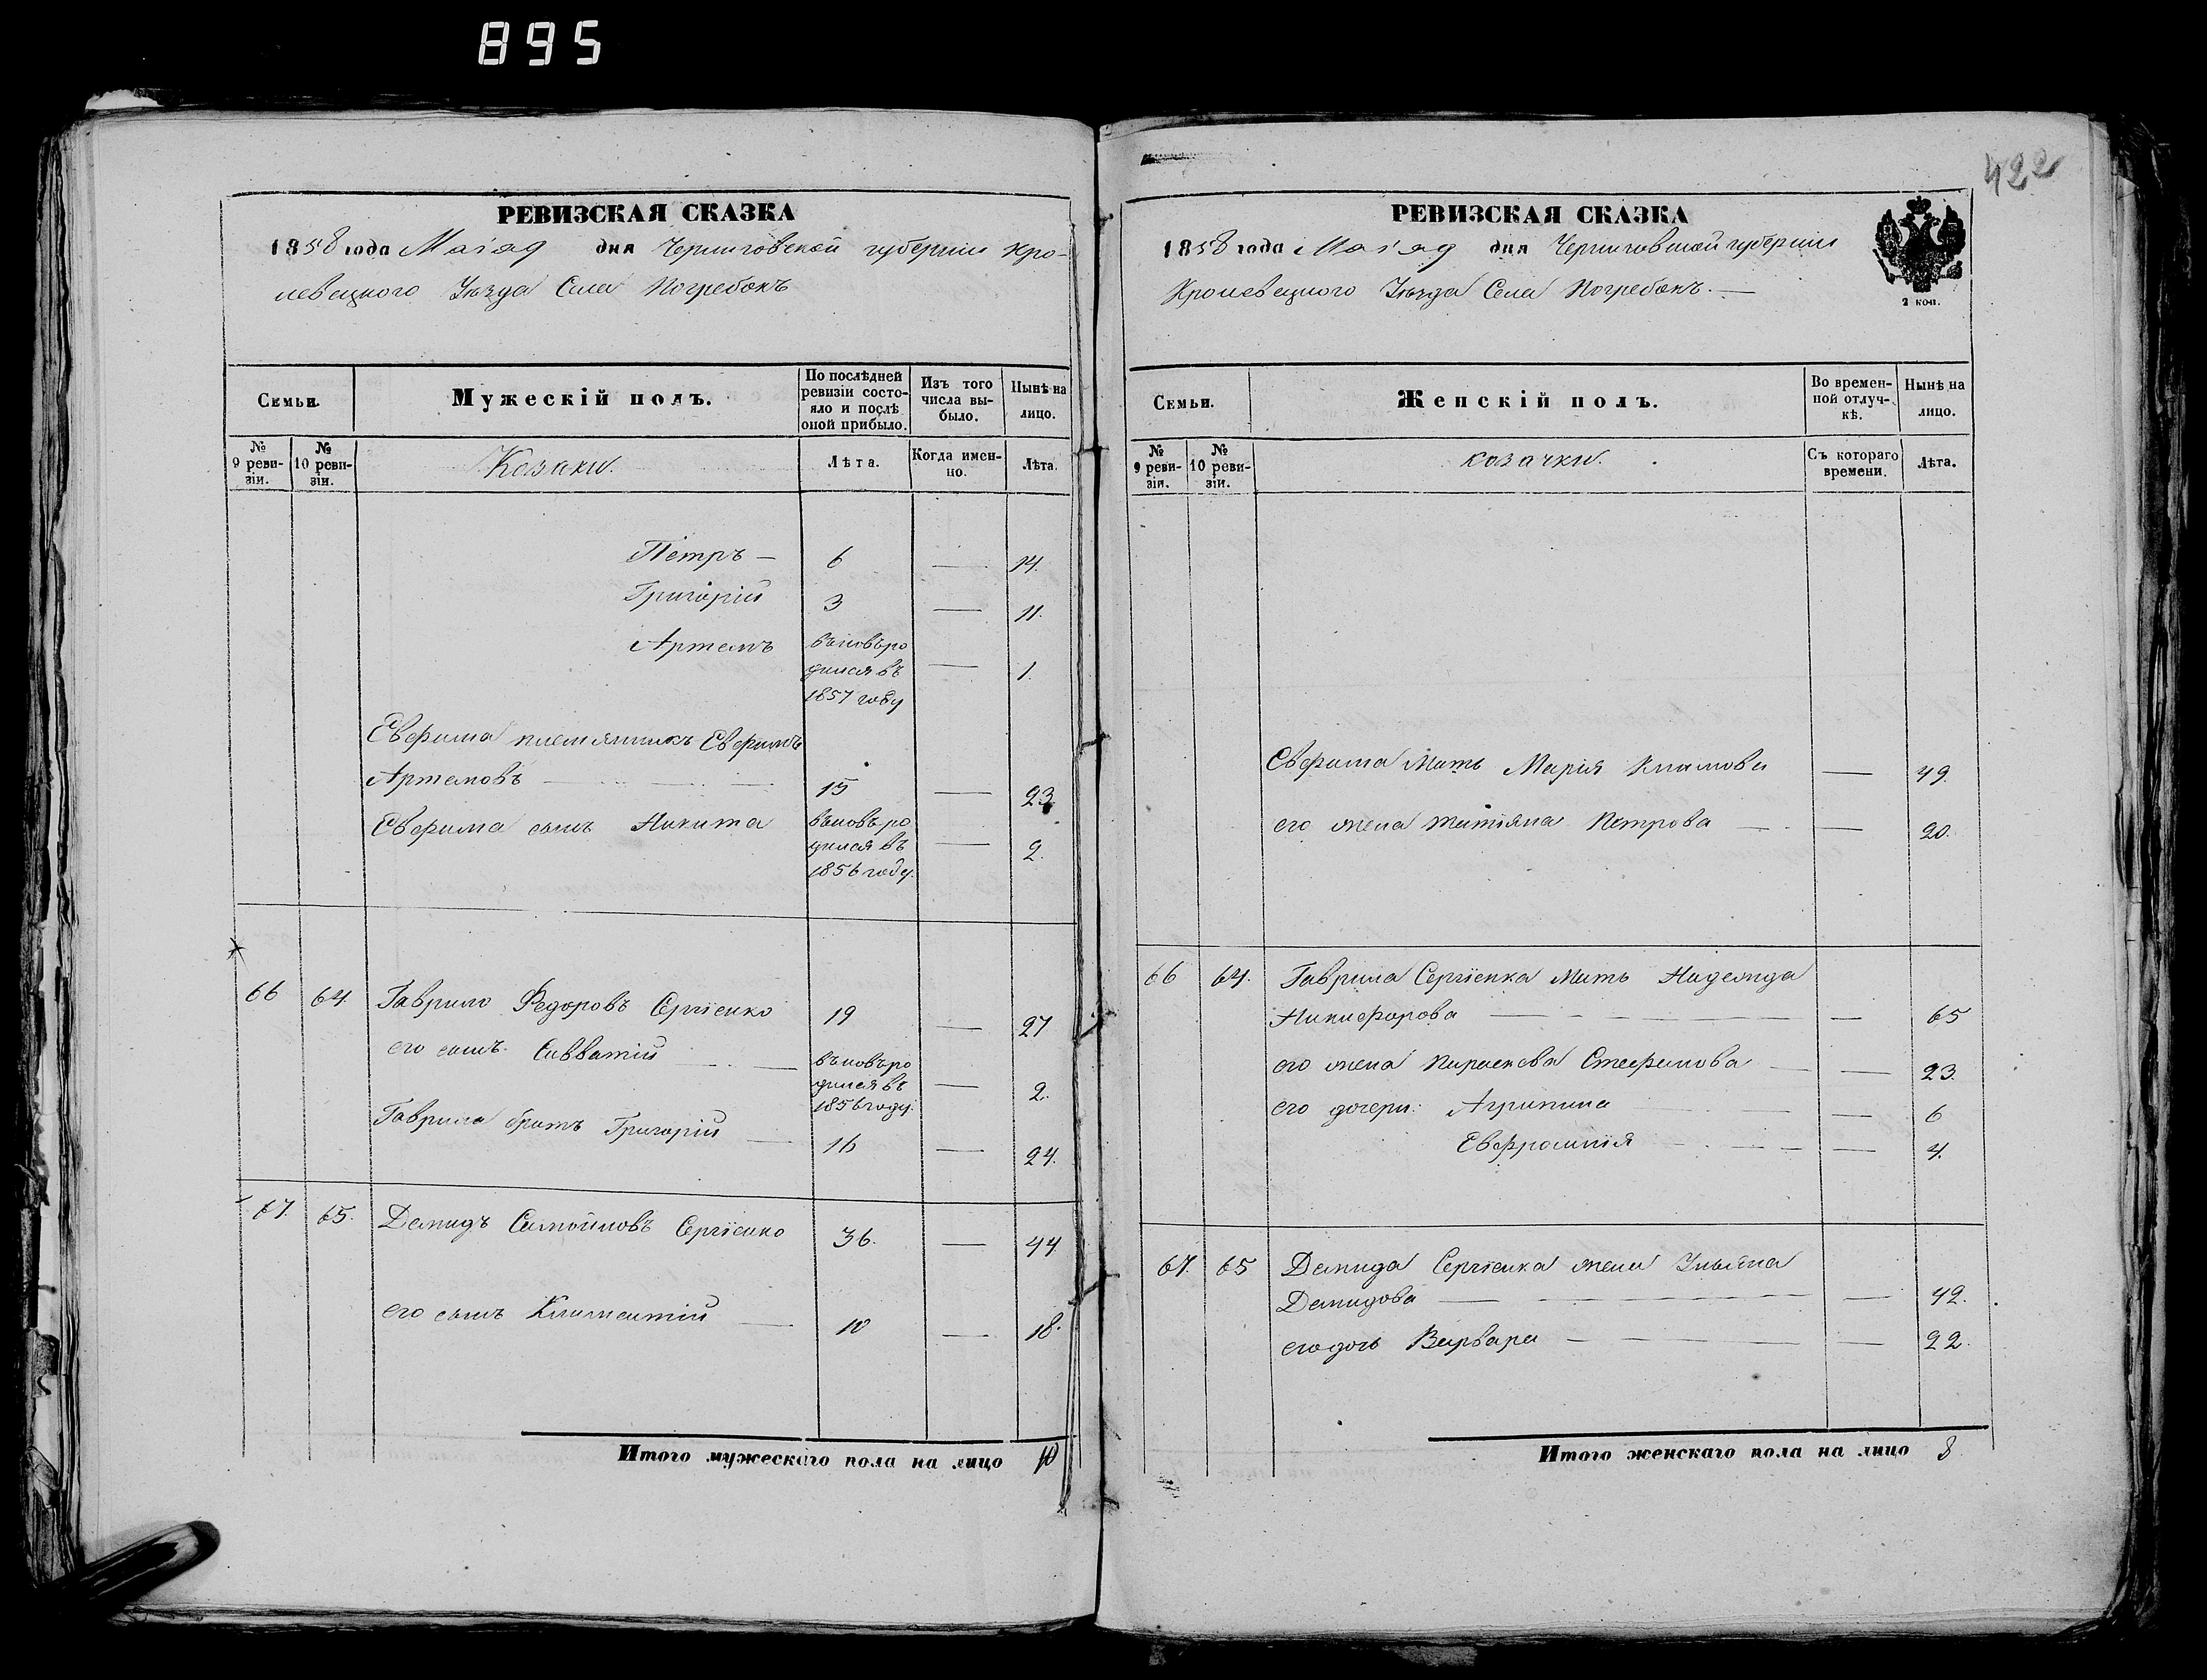 895
422
РЕВИЗСКАЯ СКАЗКА
1858 года Маія д дня Черниговской губерніи Кро-
левецкого Уѣзда Села Погребокъ
Семьи.
Мужескій полъ.
По послѣдней ревизіи состояло и послѣ оной прибыло.
Изъ того числа выбыло.
Нынѣ на лицо.
№ 9 ревизіи.
№ 10 ревизіи.
Козаки.
Лѣта.
Когда именно.
Лѣта.
Петръ — 6 — 14.
Григорій 3 — 11.
Артемъ вновь ро
дился въ — 1.
1857 году
Евфима племянникъ Евфимъ
Артемовъ — 15 — 23
Евфима сынъ Никита вновь ро
дился въ — 2.
1856 году.
66 64 Гаврило Федоровъ Сергіенко 19 — 27
его сынъ Савватій — вновь ро
дился въ — 2.
1856 году.
Гаврила братъ Григорій — 16 — 24.
67. 65. Демидъ Самойловъ Сергіенко 36. — 44
его сынъ Климентій — 10 — 18.
Итого мужескаго пола на лицо 10
РЕВИЗСКАЯ СКАЗКА
1858 года Маія д дня Черниговской губерніи
Кролевецкого Уѣзда Села Погребокъ. —
2 коп.
Семьи.
Женскій полъ.
Во временной отлучкѣ.
Нынѣ на лицо.
№ 9 ревизіи.
№ 10 ревизіи.
козачки.
Съ котораго времени.
Лѣта.
Евфима Мать Марія Климова — 49.
его жена Татіяна Петрова — — 20.
66 64. Гаврила Сергіенка Мать Надежда
Никифорова — — 65
его жена Параскева Стефанова — — 23.
его дочери: Агрипина — — 6
Евфросинія — — 4.
67. 65 Демида Сергіенка жена Ульяна
Демидова — — 42.
его дочь Варвара — — 22.
Итого женскаго пола на лицо 8